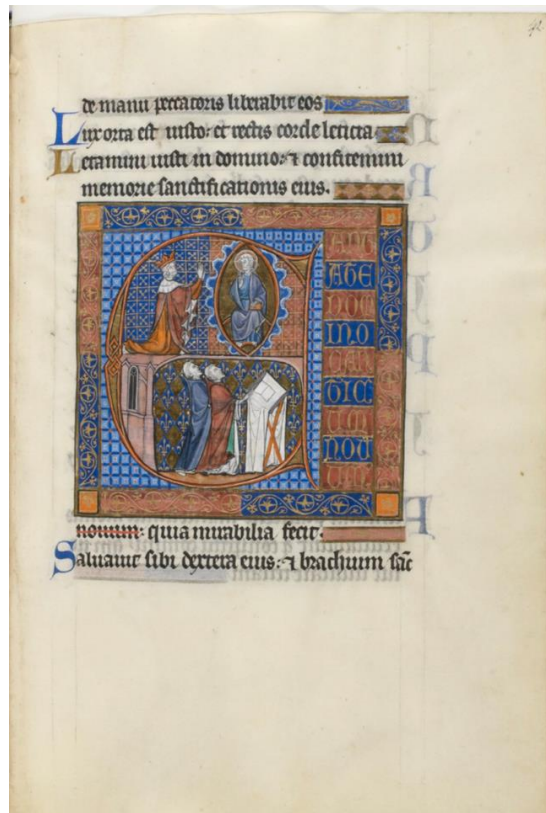 de manu peccatoris liberabit eos
Lux orta est iusto: et rectis corde leticia
Letamini iusti in domino: ⁊ confitemini
memorie sanctificationis eius.
ATE
INO
TIC
NOU
nouum: quia mirabilia fecit.
Saluauit sibi dextera eius: ⁊ brachium sāc